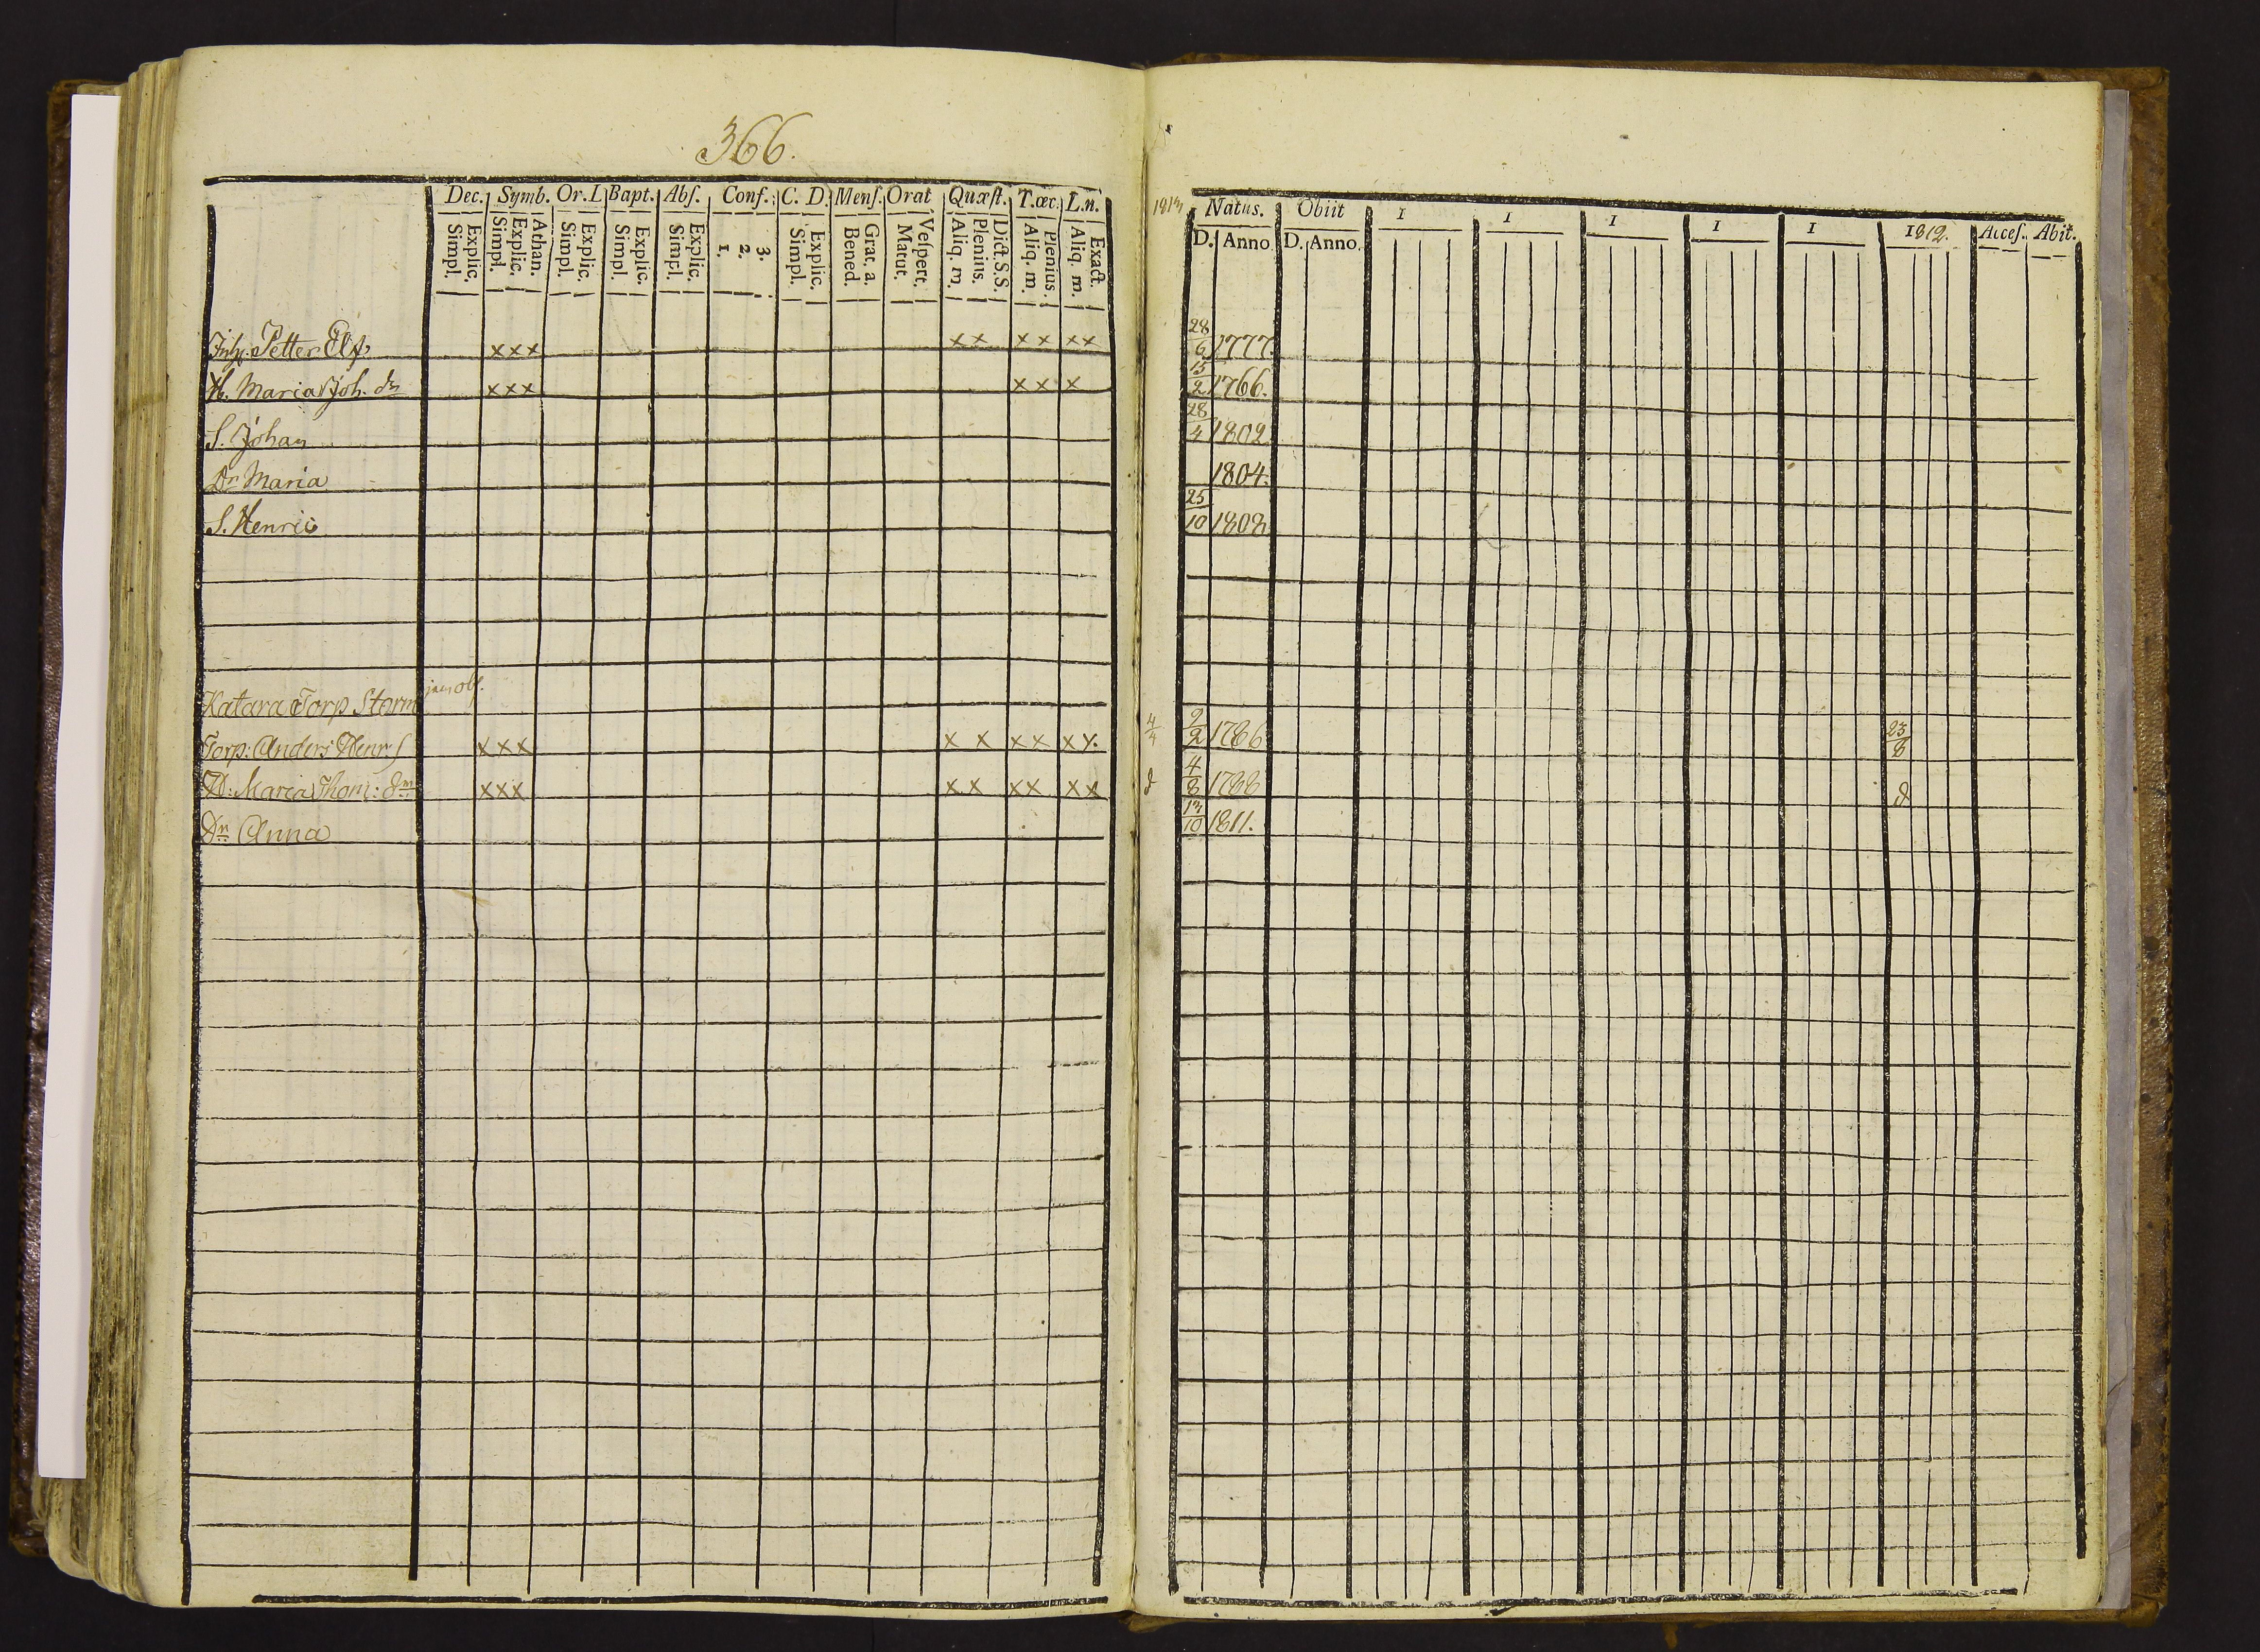 366.
Dec. Symb. Or. L Bapt. Abſ. Conf. C. D. Menſ. Orat Quæſt. T. œc. L. n.
Simpl. Explic. Simpl. Explic. Athan. Simpl. Explic. Simpl. Explic. Simpl. Explic. 1. 2. 3. Simpl. Explic. Bened. Grat. a. Matut. Veſpert. Aliq. m. Plenius. Dict. S.S. Aliq. m. Plenius. Aliq. m. Exact.
Petter x x x x x x x x x
H. Maria Joh. dr x x x x x x
S. Johan
Dr Maria
S. Henric
Katara Torp Storm
Torp: Anders Henr S x x x x x x x x x
H: Maria Thom: dr x x x x x x x x x
Dr Anna
1813 Natus. Obiit 1 1 1 1 1 1812. Acceſ. Abit.
D. Anno D. Anno.
28/6 1777.
15/2 1766.
28/4 1802
1804.
25/10 1808
4/4 2/2 1786 23/8
d 4/8 1788 d
13/10 1811.